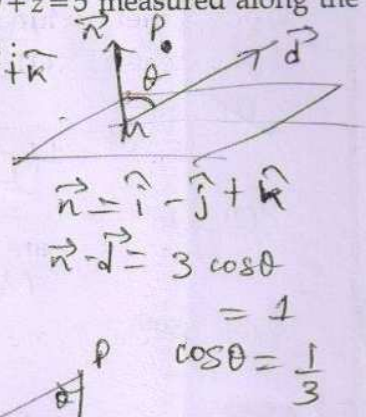 +z=5 measured along the
n⃗ P d⃗
î+k̂
θ
n⃗ = î - ĵ + k̂
n⃗·d⃗ = 3 cosθ
= 1
P cosθ = 1/3
θ